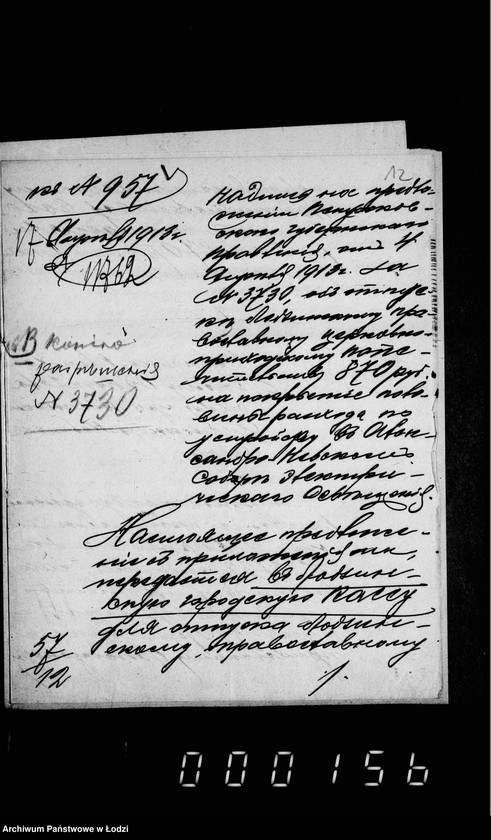 къ № 957
17 Апрѣля 1913 г.
№ 1762
Въ копіи
разрѣшенія
№ 3730
12
Надпись на предло-
женіи Петроков-
скаго губернскаго
правленія, отъ 4
Апрѣля 1913 г. за
№ 3730, объ отпус-
кѣ Лодзинскому пра-
вославному церковно-
приходскому попе-
чительству 870 руб.
на покрытіе поло-
вины расхода по
устройству въ Алек-
сандро-Невскомъ
Соборѣ электри-
ческаго освѣщенія.
Настоящее предложе-
ніе съ приложеніями,
передается въ Лодзин-
скую городскую кассу
для отпуска Лодзин-
скому православному
57
12
1.
000156
Archiwum Państwowe w Łodzi